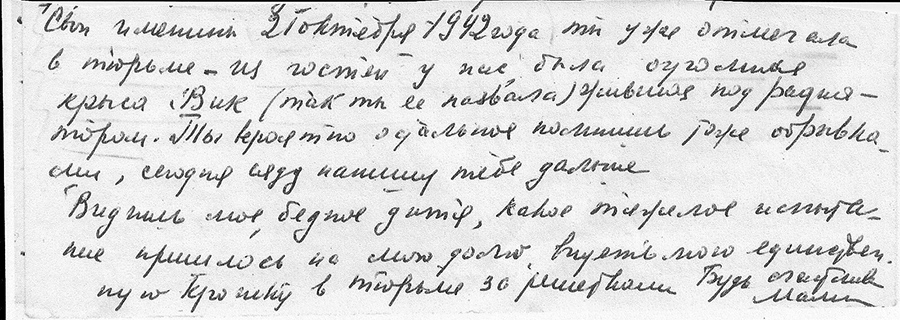 Свои именины 21 октября 1942 года ты уже отмечала
в тюрьме – из гостей у нас была огромная
крыса "Вик" (так ты ее назвала) жившая под радиа-
тором. Ты вероятно остальное помнишь тоже обрывка-
ми, сегодня сяду напишу тебе дальше
Видишь мое бедное дитя, какое тяжелое испыта-
ние пришлось на мою долю видеть мою единствен.
ную крошку в тюрьме за решетками Будь счастлива
Мама